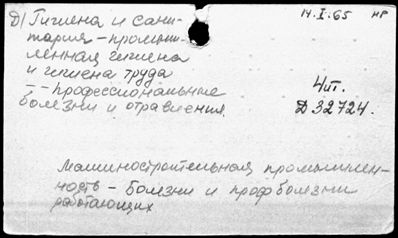 Д) Гигиена и сани-
тария - промыш-
ленная гигиена
и гигиена труда
– – профессиональные
болезни и отравления.
14.I.65 НР
4шт.
Д 32724.
Машиностроительная промышлен-
ность - болезни и профболезни
работающих